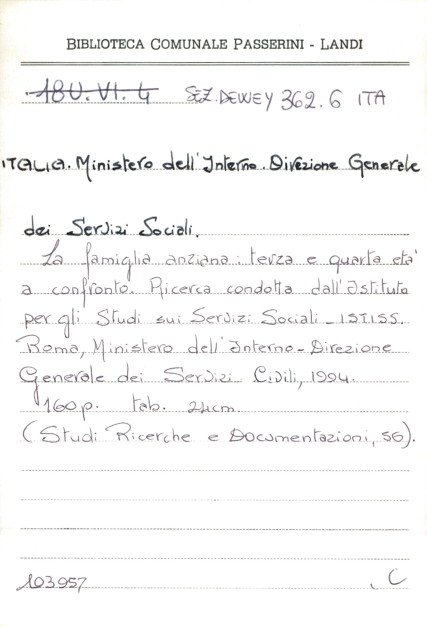 BIBLIOTECA COMUNALE PASSERINI - LANDI
180.VI.4 SEZ.DEWEY 362.6 ITA
ITALIA. Ministero dell'Interno. Direzione Generale
dei Servizi Sociali.
La famiglia anziana: terza e quarta eta'
a confronto. Ricerca condotta dall'Istituto
per gli Studi sui Servizi Sociali - ISTISS.
Roma, Ministero dell'Interno - Direzione
Generale dei Servizi Civili, 1994.
160 p. tab. 24cm.
(Studi Ricerche e Documentazioni, 56).
103957 C